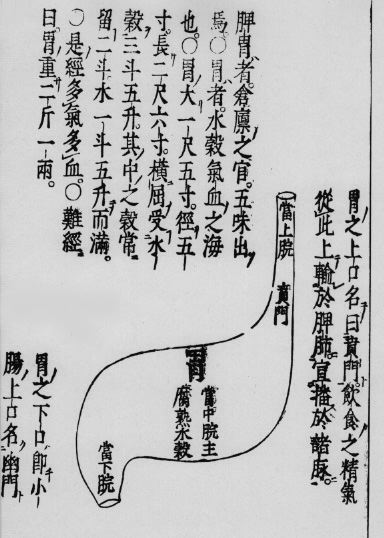 胃之上口名曰賁門。飲食之精氣
從此上輸於脾肺。宣播於諸脉。
當上脘
賁門
胃
當中脘主
腐熟水穀
當下脘
脾胃者。倉廩之官。五味出
焉。〇胃者。水穀氣血之海
也。〇胃大一尺五寸。徑五
寸。長二尺六寸。橫屈受水
穀三斗五升。其中之穀。常
留二斗。水一斗五升而滿。
〇是經多氣多血。〇難經
曰。胃重二斤一兩。
胃之下口即小
腸上口名幽門